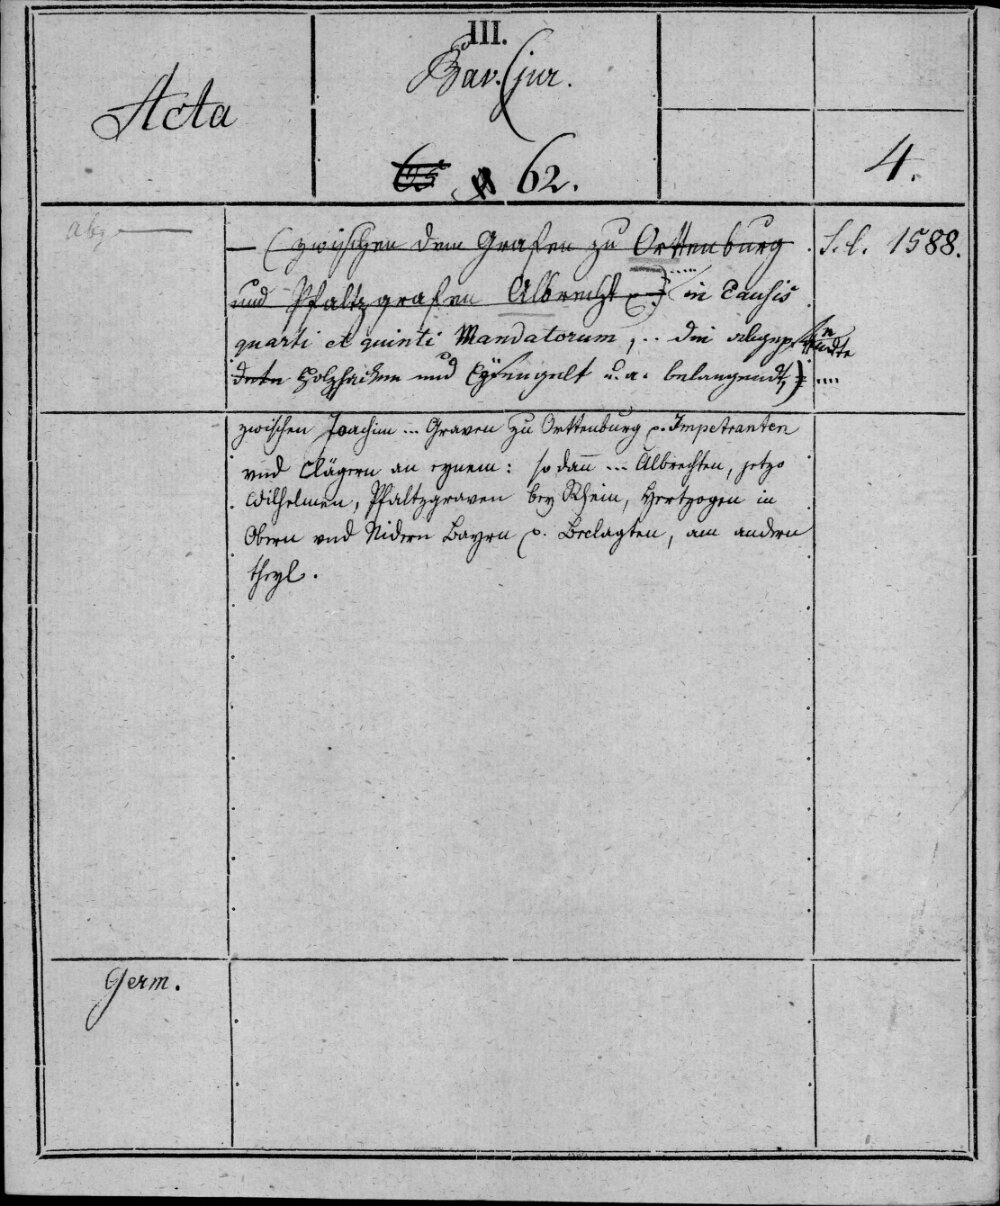 III.
Bav. jur.
Acta
62.
4.
— (zwischen dem Grafen zu Orttenburg
S. l. 1588.
und Pfaltzgrafen Albrecht in Causis
quarti et quinti Mandatorum, .. die
Holzhacken und u. a. belangendt) ....
zwischen Joachim ... Graven zu Orttenburg p. Impetranten
vnd Clägern an eynem: so dann ... Albrechten, jetzo
Wilhelmen, Pfaltzgraven bey Rhein, Hertzogen in
Obern vnd Nidern Bayrn p. Beclagten, am andern
theyl.
Germ.